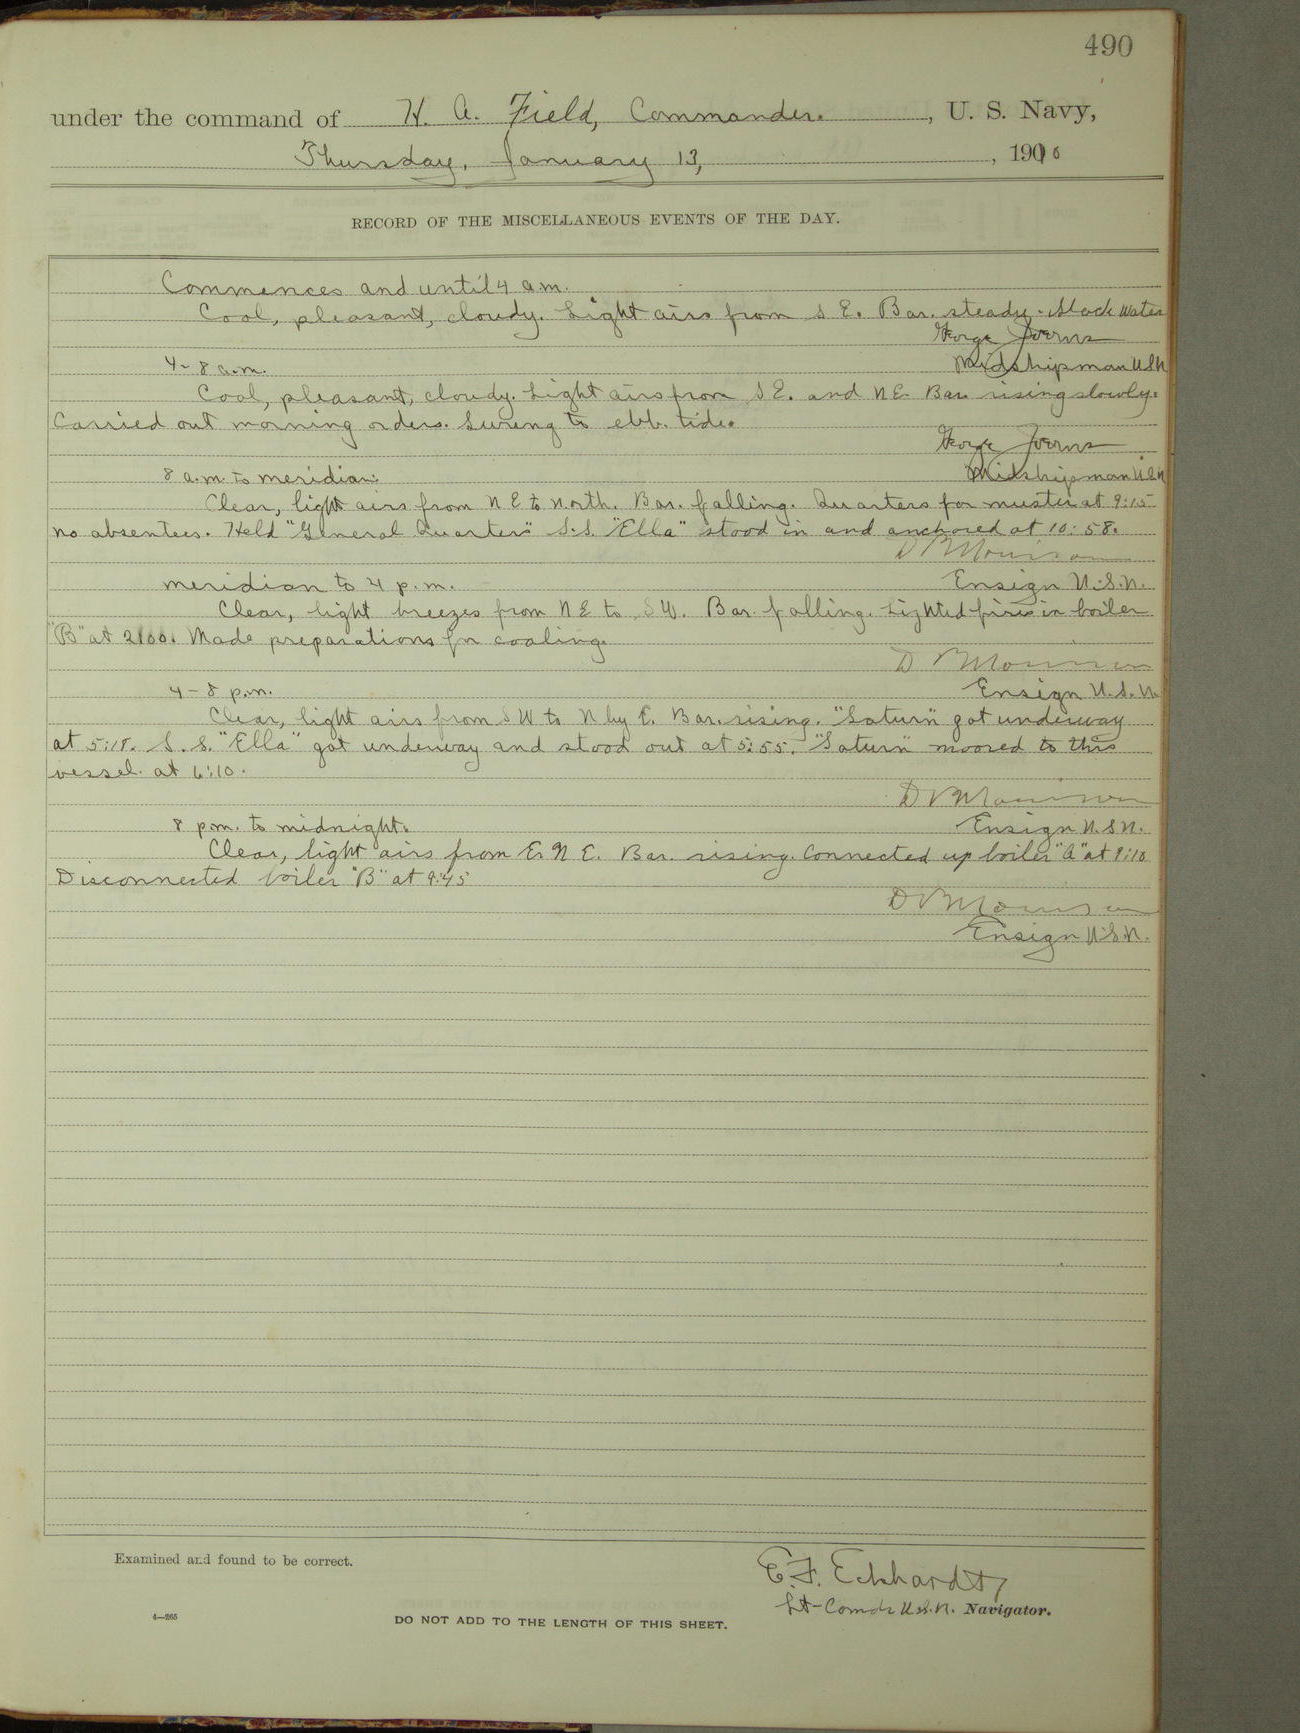 490
under the command of H. A. Field, Commander. , U. S. Navy,
Thursday, January 13, , 1910
RECORD OF THE MISCELLANEOUS EVENTS OF THE DAY.
Commences and until 4 a.m.
Cool, pleasant, cloudy. Light airs from S E. Bar. steady. Slack water
George Joerns
Midshipman U.S.N
4-8 a.m.
Cool, pleasant, cloudy. Light airs from S E. and N E. Bar. rising slowly.
Carried out morning orders. Swung to ebb. tide.
George Joerns
Midshipman U.S.N
8 a.m. to meridian:
Clear, light airs from N E to North. Bar. falling. Quarters for muster at 9:15
no absentees. Held "General Quarters" S.S. "Ella" stood in and anchored at 10:58.
Ensign U.S.N.
meridian to 4 p.m.
Clear, light breezes from N E to S W. Bar. falling. Lighted fires in boiler
"B" at 2:00. Made preparations for coaling.
Ensign U.S.N.
4-8 p.m.
Clear, light airs from S W to N by E. Bar. rising. "Saturn" got underway
at 5:18. S. S. "Ella" got underway and stood out at 5:55. "Saturn" moored to this
vessel at 6:10.
Ensign U.S.N.
8 p.m. to midnight.
Clear, light airs from E. N E. Bar. rising. Connected up boiler "A" at 9:10
Disconnected boiler "B" at 9:45
Ensign U.S.N.
Examined and found to be correct.
E. F. Eckhardt,
Lt-Comdr U.S.N. Navigator.
4—265
DO NOT ADD TO THE LENGTH OF THIS SHEET.